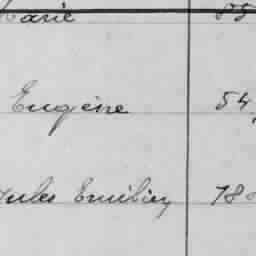 Marie 55
Eugène 54
Jules Emilien 78